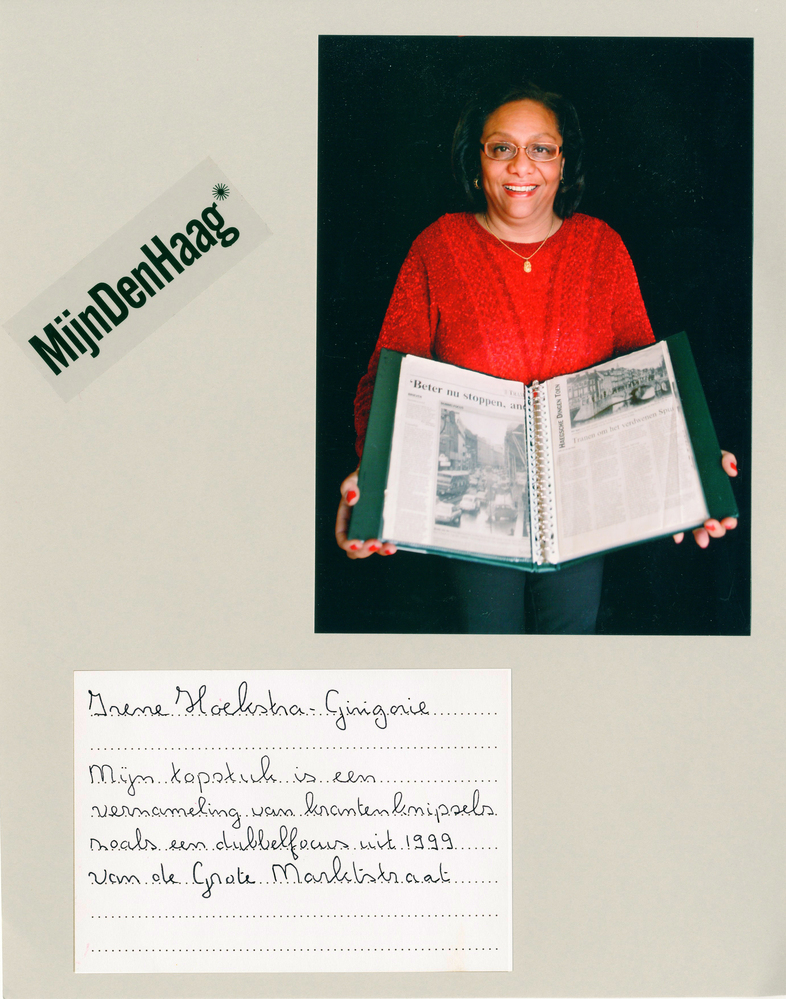 MijnDenHaag
'Beter nu stoppen, an
HAAGSCHE DINGEN TOEN
Tranen om het verdwenen Spui
Irene Hoekstra-Girigorie
Mijn topstuk is een
verzameling van krantenknipsels
zoals een dubbelfocus uit 1999
van de Grote Marktstraat